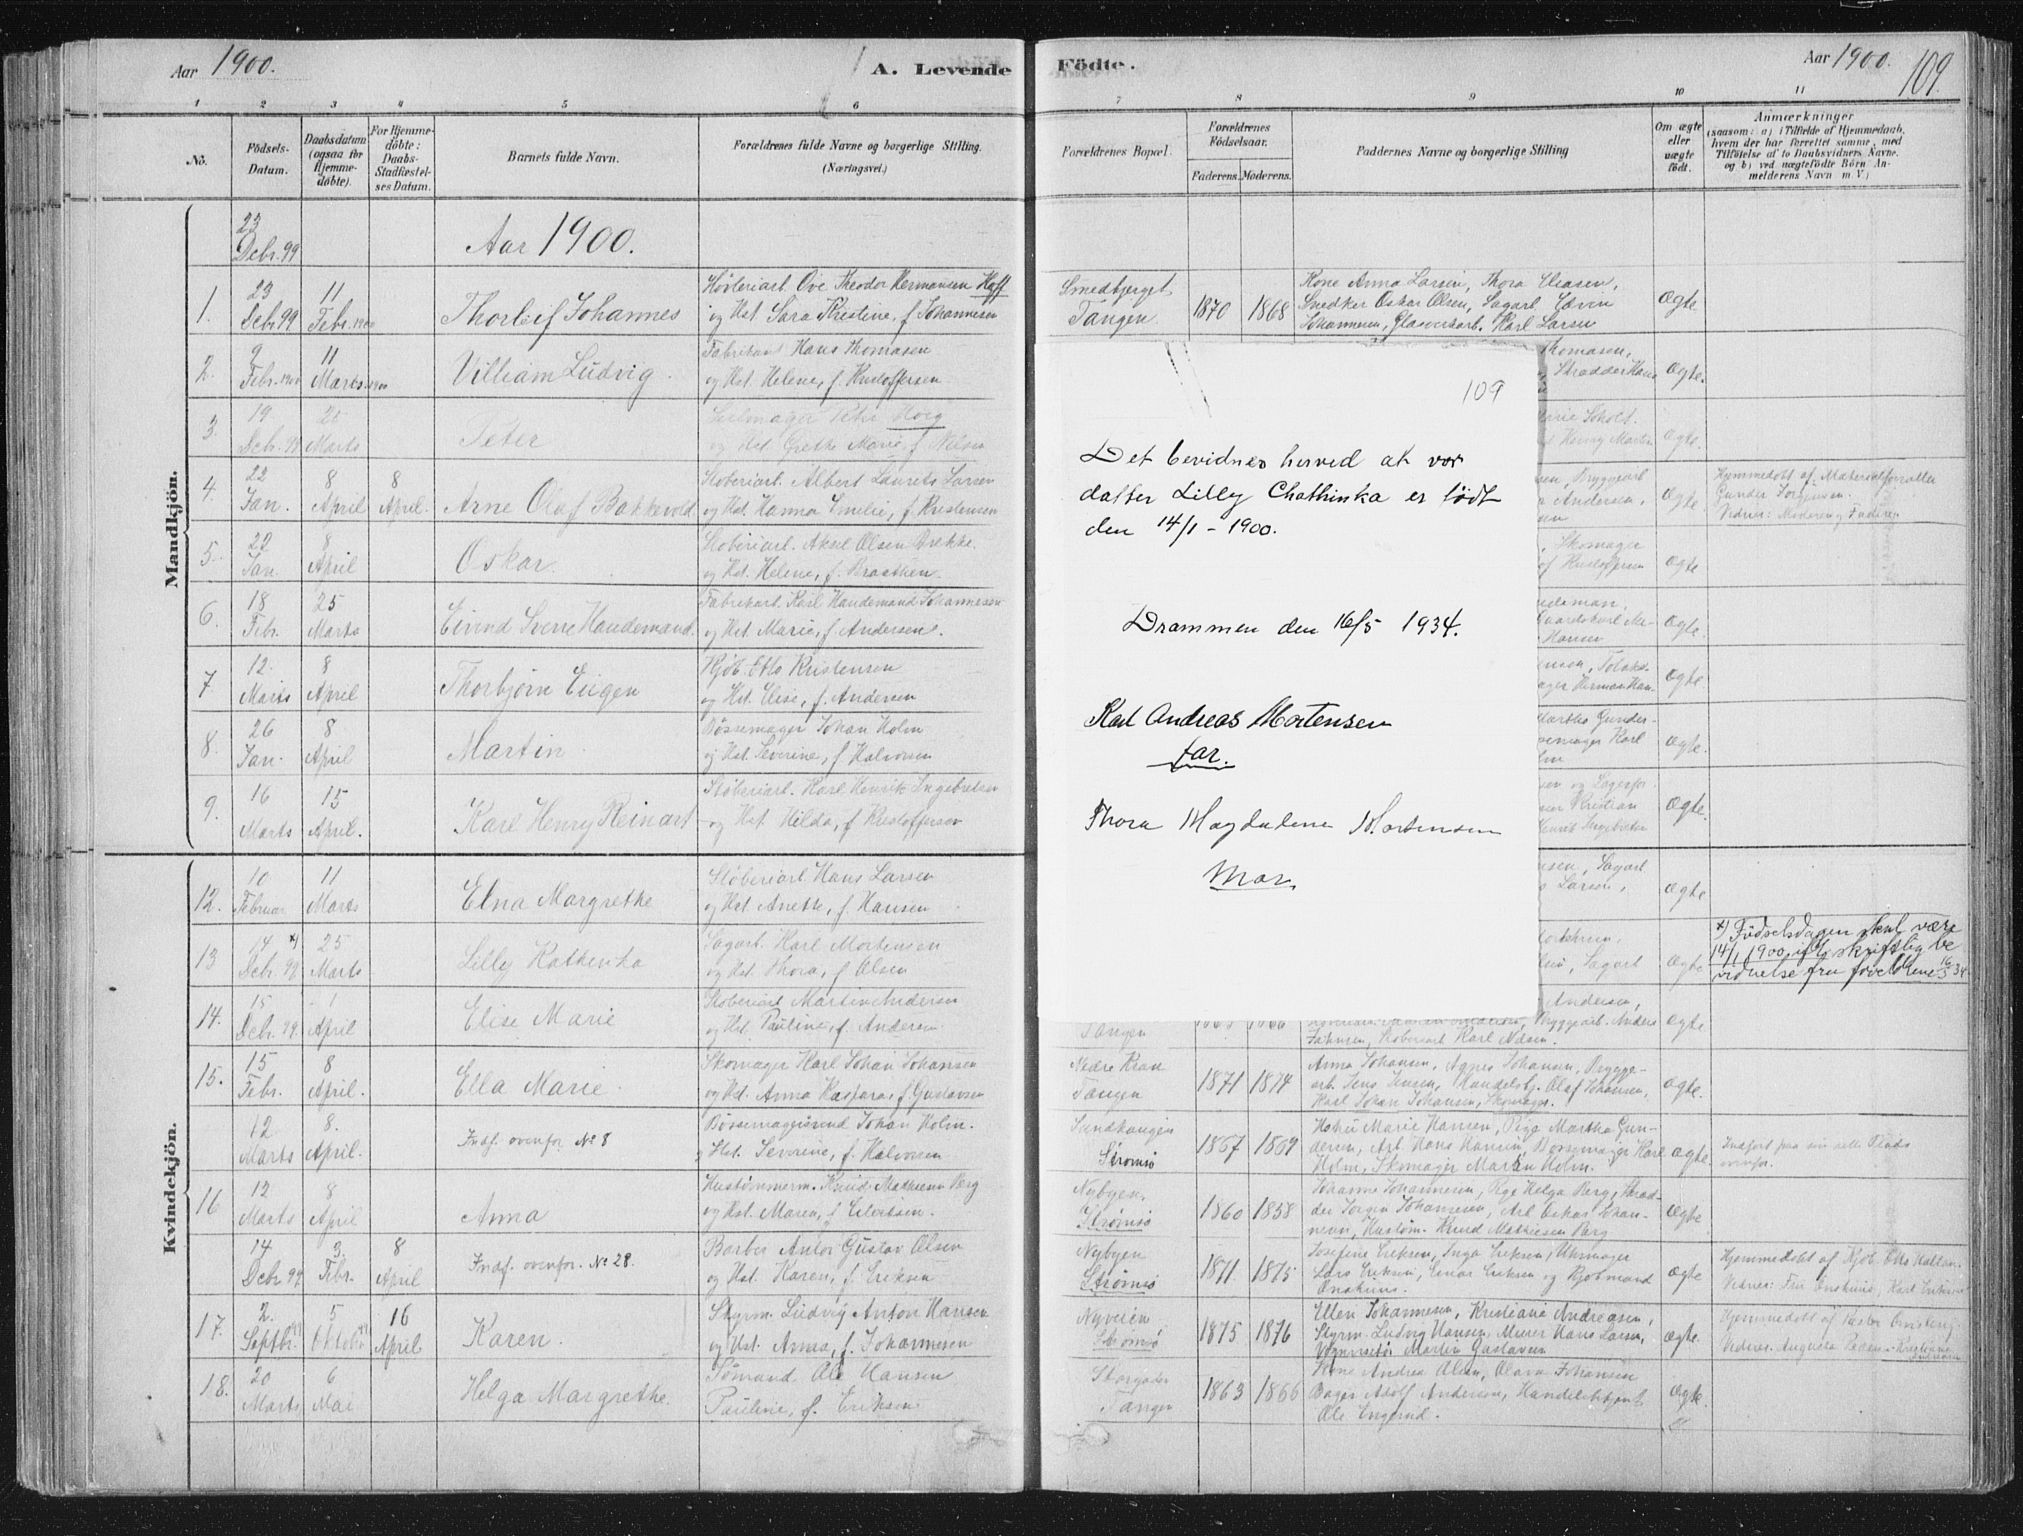 Aar 1900.
A. Levende Födte.
Aar 1900.
109.
1 2 3 4 5 6 7 8 9 10 11
No.
Födsels-
Datum.
Daabsdatum
(ogsaa for
Hjemme-
døbte).
For Hjemme-
døbte:
Daabs-
Stadfæstel-
ses Datum.
Barnets fulde Navn.
Forældrenes fulde Navne og borgerlige Stilling.
(Næringsvei.)
Forældrenes Bopæl.
Forældrenes
Födselsaar.
Faderens. Moderens.
Faddernes Navne og borgerlige Stilling
Om ægte
eller
uægte
født.
Anmærkninger
(saasom: a) i Tilfælde af Hjemmedaab,
hvem der har forrettet samme, med
Tilföielse af to Daabsvidners Navne,
og b) ved uægtefødte Børn An-
melderens Navn m. V.)
Mandkjön.
23
Debr. 99
Aar 1900.
1. 23 Debr 99 11 Febr. 1900 Thorleif Johannes
Høvleriarb. Ove Theodor Hermansen Hoff
og Hst. Sara Kristine, f. Johannesen
Smedbjerget
Tangen 1870 1868
Kone Anna Larsen, Thora Eliasen,
Snedker Oskar Olsen, Sagarb. Edvin
Johannesen, Glasverkarb. Karl Larsen
Ægte
2. 9 Febr. 1900 11 Marts 1900 Villiam Ludvig
Fabrikant Hans Thomasen
og Hst. Helene, f. Kristoffersen
Thomasen,
Skrædder Hans
Ægte.
3. 19 Debr. 99 25 Marts Peter
Seilmager Peter Hoeg
og Hst. Grethe Marie f. Nilsen
Henry Martin
Ægte.
4. 22 Jan. 8 April 8 April. Arne Olaf Bakkevold
Støberiarb. Albert Laurets Larsen
og Hst. Hanna Emilie, f. Kristensen
Bryggearb
Andersen,
Ægte
Hjemmedøbt af Materialforvalter
Gunder Jørgensen.
Vidner: Moderen og Faderen
5. 22 Jan. 8 April Oskar
Støberiarb. Aksel Olsen Brekke.
og Hst. Helene, f. Braathen.
Skomager
Kristoffersen
Ægte
6. 18 Febr. 25 Marts Eivind Sverre Handemand.
Fabrikarb. Karl Handemand Johannesen
og Hst. Marie, f. Andersen.
Hansen
Ægte
7 12. Marts 8 April Thorbjørn Eugen
Kjøb. Otto Kristensen
og Hst. Elise, f. Andersen
Herman Han-
Ægte
8. 26 Jan. 8 April Martin
Bøssemager Johan Holm
og Hst. Severine, f. Halvorsen
Martha Gunder-
Karl
Ægte.
9. 16 Marts 15 April. Karl Henry Reinart
Støberiarb. Karl Henrik Ingebretsen
og Hst. Hilda, f. Kristoffersen
Kristian
Henrik Ingebretsen
Ægte.
109
Det bevidnes herved at vor
datter Lilly Chathinka er født
den 14/1 - 1900.
Drammen den 16/5 1934.
Karl Andreas Mortensen
far.
Thora Magdalene Mortensen
Mor.
Kvindekjön.
12. 10 Februar 11 Marts Elna Margrethe
Støberiarb. Hans Larsen
og Hst. Anette, f. Hansen
Sagarb
Larsen,
Ægte
13 14 x) Debr. 99 25 Marts Lilly Kathenka
Sagarb. Karl Mortensen
og Hst. Thora, f. Olsen
Sagarb
Ægte
x) Fødselsdagen skal være
14/1 1900 iflg. skriftlig be
vidnelse fra forældrene 16/5 34
14. 15 Debr. 99. 1 April Elise Marie
Støberiarb. Martin Andersen
og Hst. Pauline, f. Andersen
Tangen
Andersen,
Bryggearb. Anders
Jahnsen, Støberiarb Karl Nilsen.
Ægte
15. 15 Febr. 8 April. Ella Marie.
Skomager Karl Johan Johansen
og Hst. Anna Kaspara, f. Gustavsen
Nedre Kran
Tangen 1871 1874
Anna Johansen, Agnes Johansen, Brygge-
arb. Jens Jensen, Handelsb. Olaf Johansen,
Karl Johan Johansen, Skomager.
Ægte.
12 Marts 8. April. Indf. ovenfor No 8
Bøssemagersvend Johan Holm.
og Hst. Severine, f. Halvorsen
Sundhaugen
Strømsø 1867 1869
Marie Hansen, Pige Martha Gun-
dersen, Arb. Hans Hansen, Bøssemager Karl
Holm, Skomager Martin Holm.
Ægte.
Indført paa sin rette Plads
ovenfor.
16 12 Marts 8 April Anna
Hustømmerm. Knud Mathiesen Berg
og Hst. Maren, f. Eilertsen.
Nybyen.
Strømsø 1860 1858
Johanne Johannesen, Pige Helga Berg, Skræd-
der Jørgen Johannesen, Arb. Oskar Johan-
nesen, Hustøm. Knud Mathiesen Berg
Ægte
14 Debr 99. 9. Febr. 8 April Indf. ovenfor. No 28.
Barber Anton Gustav Olsen
og Hst. Karen, f. Eriksen
Nybyen
Strømsø 1871. 1875
Josefine Eriksen, Inga Eriksen, Uhrmager
Lars Eriksen, Einar Eriksen og Kjøbmand
Ægte
Hjemmedøbt af Kjøb. Otto
Vidner: Fru
17. 2. Septbr. 99 5 Oktober 99 16 April Karen.
Styrm. Ludvig Anton Hansen
og Hst. Anna, f. Johannesen
Nyveien
Strømsø 1875 1876
Ellen Johannesen, Kristiane Andreasen,
Styrm. Ludvig Hansen, Murer Hans Larsen,
Martin Gustavsen
Ægte.
Hjemmedøbt af Pastor
Vidner: Augusta Kristiane
Andreasen
18. 20 Marts 6 Mai Helga Margrethe.
Sømand Ole Hansen
Pauline, f. Eriksen
Storgaden
Tangen 1863 1866
Kone Andrea Olsen, Olava Johansen
Bager Adolf Andersen, Handelsbetjent
Ole Engerud.
Ægte.